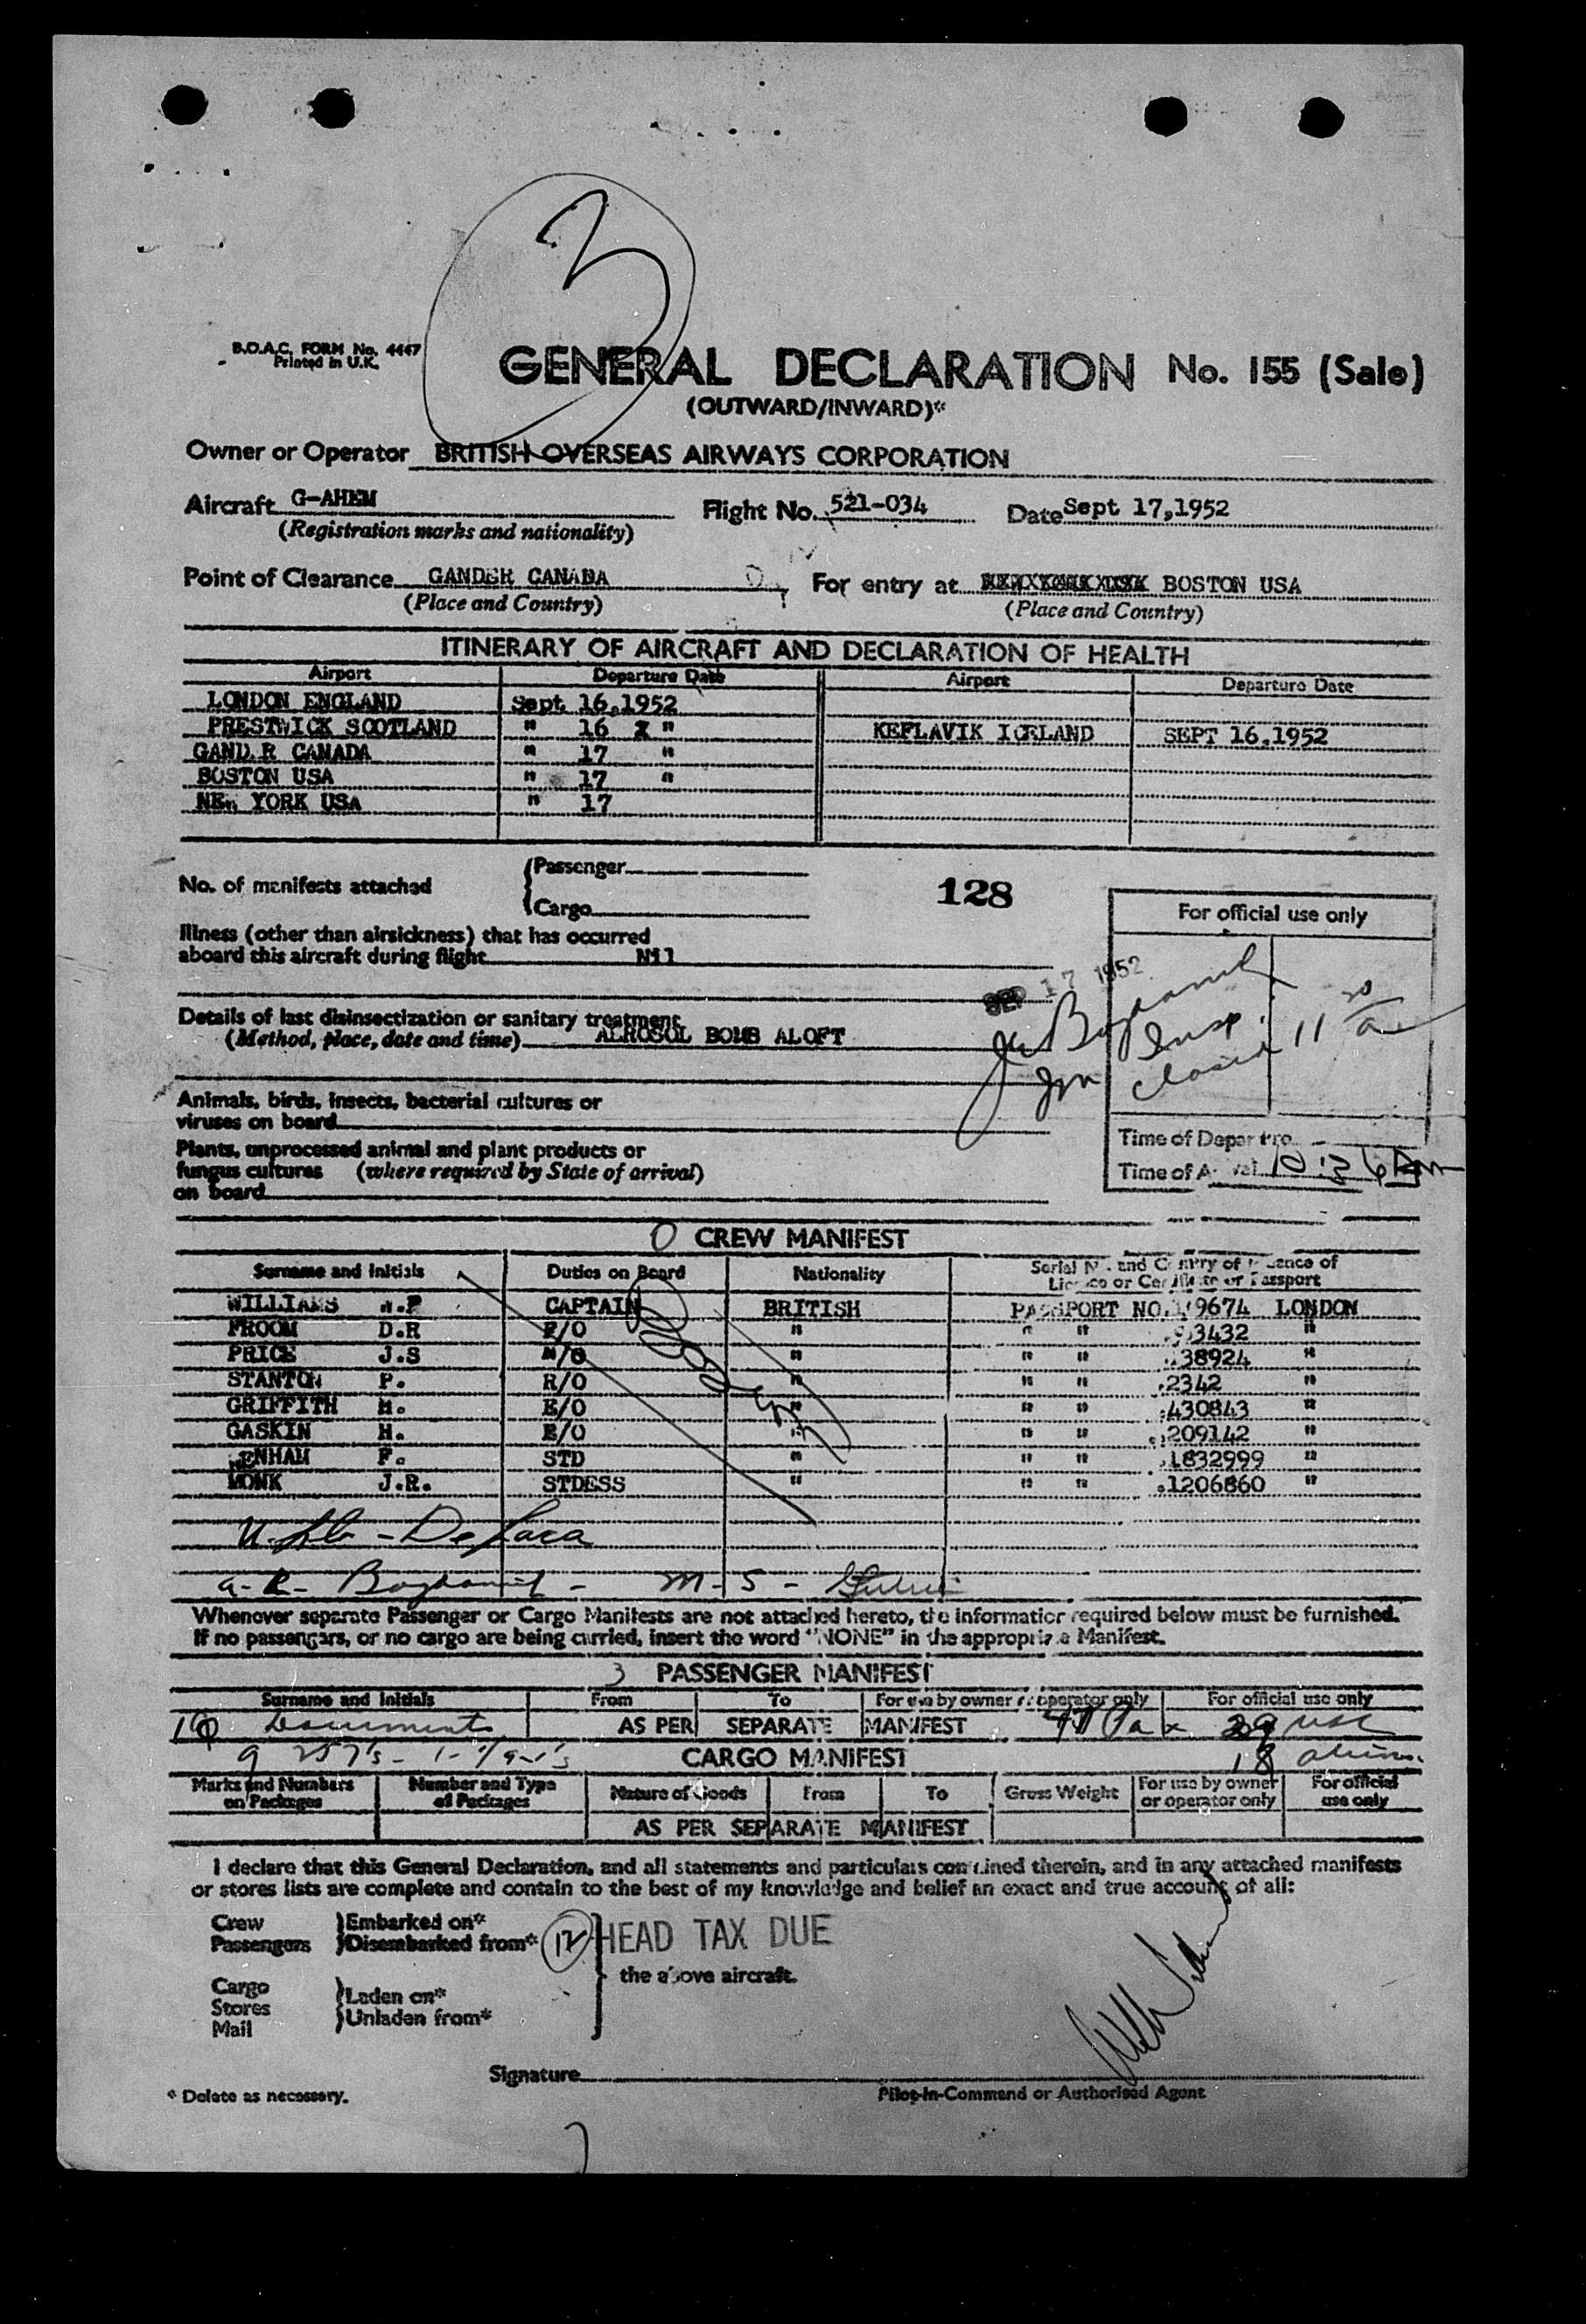 3
B.O.A.C. FORM No. 4447
Printed in U.K.
GENERAL DECLARATION No. 155 (Sale)
(OUTWARD/INWARD)*
Owner or Operator BRITISH OVERSEAS AIRWAYS CORPORATION
Aircraft G-AHEM Flight No. 521-034 Date Sept 17,1952
(Registration marks and nationality)
Point of Clearance GANDER CANADA For entry at BOSTON USA
(Place and Country) (Place and Country)
ITINERARY OF AIRCRAFT AND DECLARATION OF HEALTH
Airport Departure Date Airport Departure Date
LONDON ENGLAND Sept 16,1952
PRESTWICK SCOTLAND " 16 " KEFLAVIK ICELAND SEPT 16,1952
GAND.R CANADA " 17 "
BOSTON USA " 17 "
NEW YORK USA " 17
No. of manifests attached { Passenger
Cargo
128
For official use only
Illness (other than airsickness) that has occurred
aboard this aircraft during flight Nil
SEP 17 1952
Details of last disinsectization or sanitary treatment
(Method, place, date and time) AEROSOL BOMB ALOFT
Insp.
closed 11 20/a
Animals, birds, insects, bacterial cultures or
viruses on board
Plants, unprocessed animal and plant products or
fungus cultures (where required by State of arrival)
on board
Time of Departure
Time of Arrival 10:26 am
0 CREW MANIFEST
Surname and Initials Duties on Board Nationality Serial No. and Country of Issuance of
Licence or Certificate or Passport
WILLIAMS CAPTAIN BRITISH PASSPORT NO. 9674 LONDON
FROOM D.R F/O " " " 3432 "
PRICE J.S N/O " " " 38924 "
STANTON P. R/O " " " 2342 "
GRIFFITH M. E/O " " " 430843 "
GASKIN H. E/O " " " 209142 "
ENHAM F. STD " " " 1832999 "
MONK J.R. STDESS " " " 1206860 "
Whenever separate Passenger or Cargo Manifests are not attached hereto, the information required below must be furnished.
If no passengers, or no cargo are being carried, insert the word "NONE" in the appropriate Manifest.
3 PASSENGER MANIFEST
Surname and Initials From To For use by owner or operator only For official use only
Documents AS PER SEPARATE MANIFEST Pax 29 USC
9 257's - CARGO MANIFEST 18 aliens.
Marks and Numbers on Packages Number and Type of Packages Nature of Goods From To Gross Weight For use by owner or operator only For official use only
AS PER SEPARATE MANIFEST
I declare that this General Declaration, and all statements and particulars contained therein, and in any attached manifests
or stores lists are complete and contain to the best of my knowledge and belief an exact and true account of all:
Crew } Embarked on*
Passengers } Disembarked from* 12 HEAD TAX DUE
the above aircraft.
Cargo } Laden on*
Stores } Unladen from*
Mail
Signature
* Delete as necessary. Pilot-in-Command or Authorised Agent